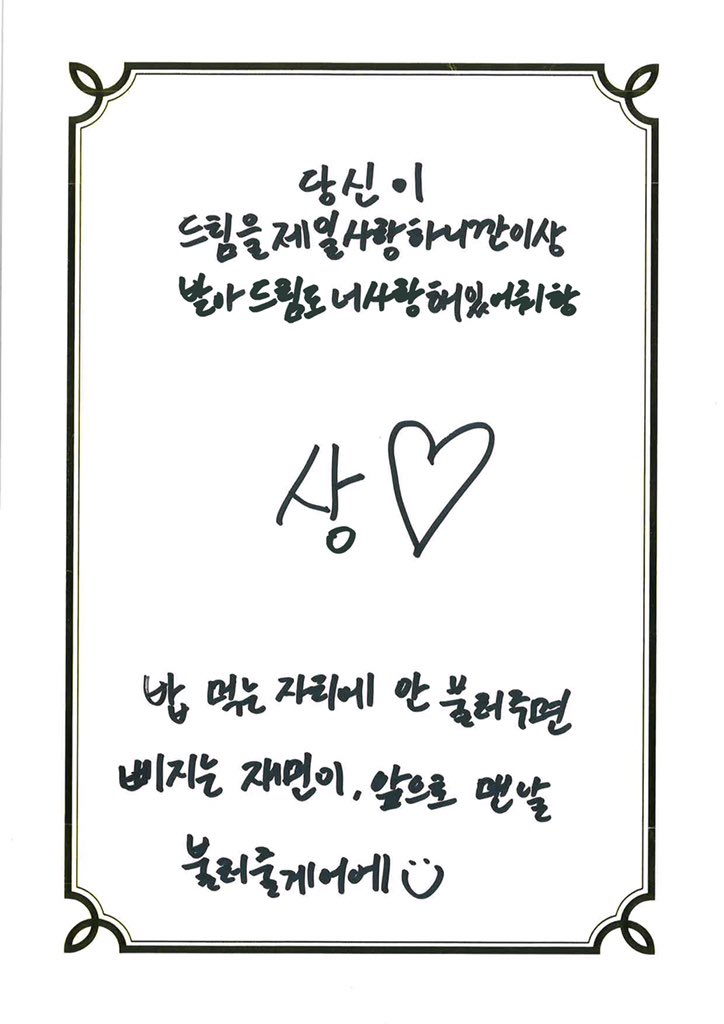 당신이
드림을 제일 사랑하니깐 이상
받아 드림도 너 사랑해 있어
상♡
밥 먹는 자리에 안 불러주면
삐지는 재민이, 앞으로 맨날
불러줄게어에 :)